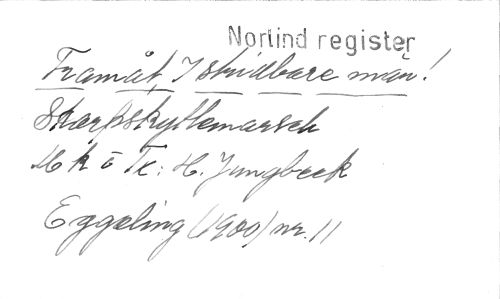 Norlind register
Framåt, I stridbare män!
Skarpskyttemarsch
H. Jungbeck
Eggeling (1900) nr. 11